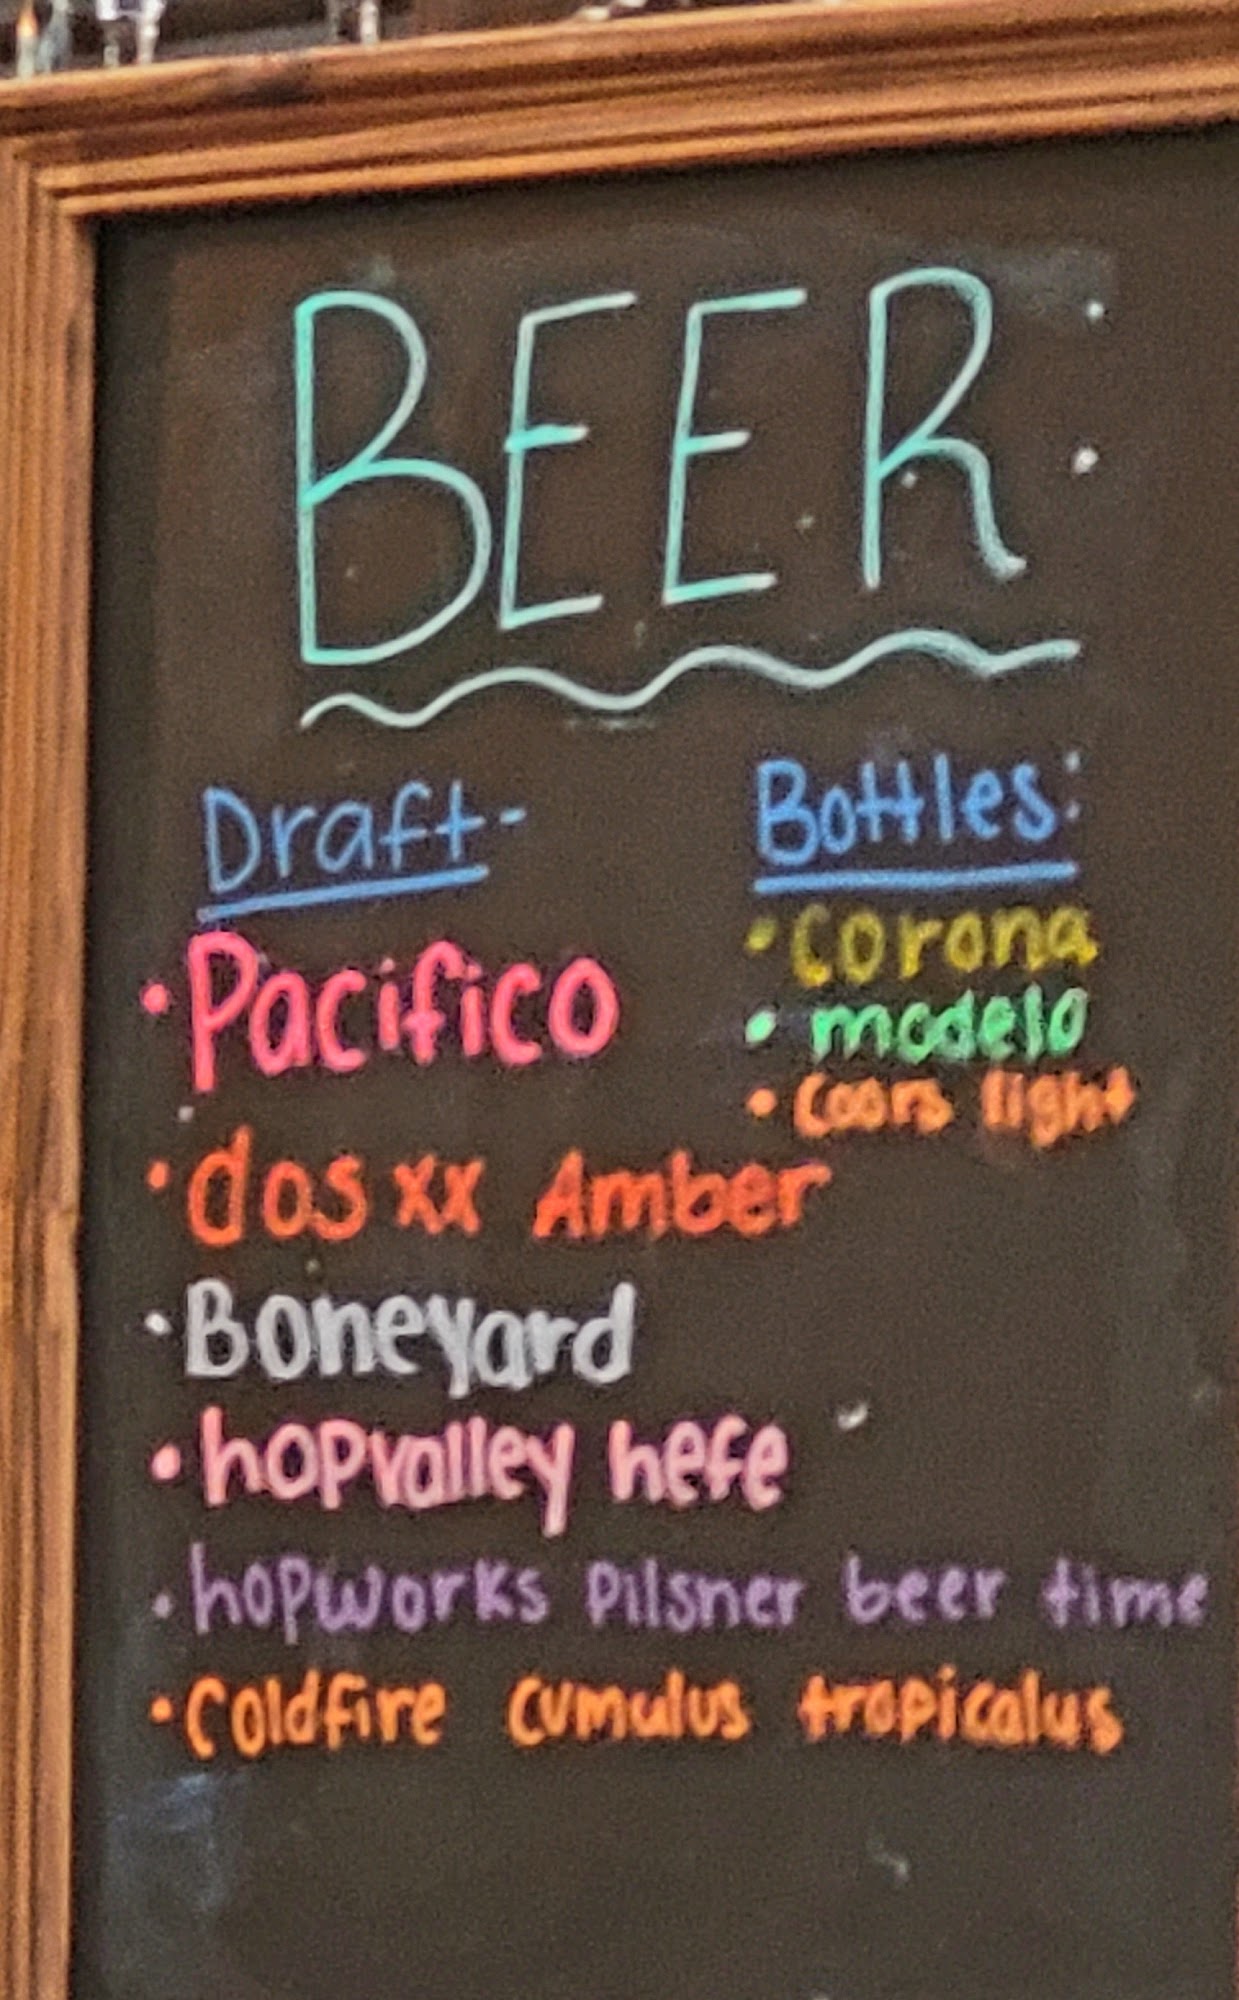 BEER
Draft-
• Pacifico
• dos xx Amber
• Boneyard
• hopvalley hefe
• hopworks Pilsner beer time
• Coldfire cumulus tropicalus
Bottles:
• Corona
• modelo
• Coors light